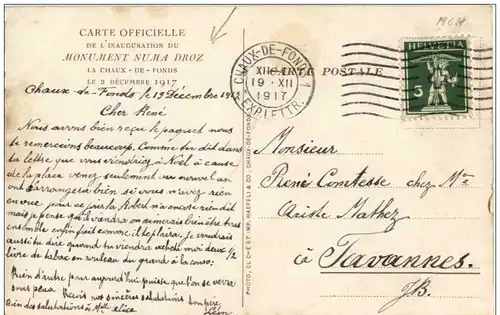 CARTE OFFICIELLE
DE L'INAUGURATION DU
MONUMENT NUMA DROZ
LA CHAUX - DE - FONDS
LE 2 DÉCEMBRE 1917
CARTE POSTALE
CHAUX-DE-FONDS 1
XII
19 · XII
1917
EXP. LETTR.
HELVETIA
5
Chaux-de-Fonds, le 19 Décembre 1917
Cher René
Nous avons bien reçu le paquet nous
te remercions beaucoup. Comme tu dit dans
ta lettre que vous viendriez à Noël à cause
de la place venez seulement au nouvel an
ont s'arrangera bien, si vous n'avez rien
en vue pour ce jour là Robert n'a encore rien dit
mais je pense qu'il viendra on aimerais bien être tous
ensemble enfin fait comme il te plaira, je voudrais
aussi te dire quand tu viendra achète moi deux 1/2
livre de tabac en rouleau du grand à la
Rien d'autre pour aujourd'hui puisque l'on se verra
sous peu Reçois nos sincères salutations
Bien des salutations à Mlle Alice
Léon
Monsieur
René Comtesse chez Mr
Ariste Mathez
à Tavannes.
JB.
PHOTO, CLICHÉ ET IMP. HAEFELI & CO, CHAUX-DE-FONDS